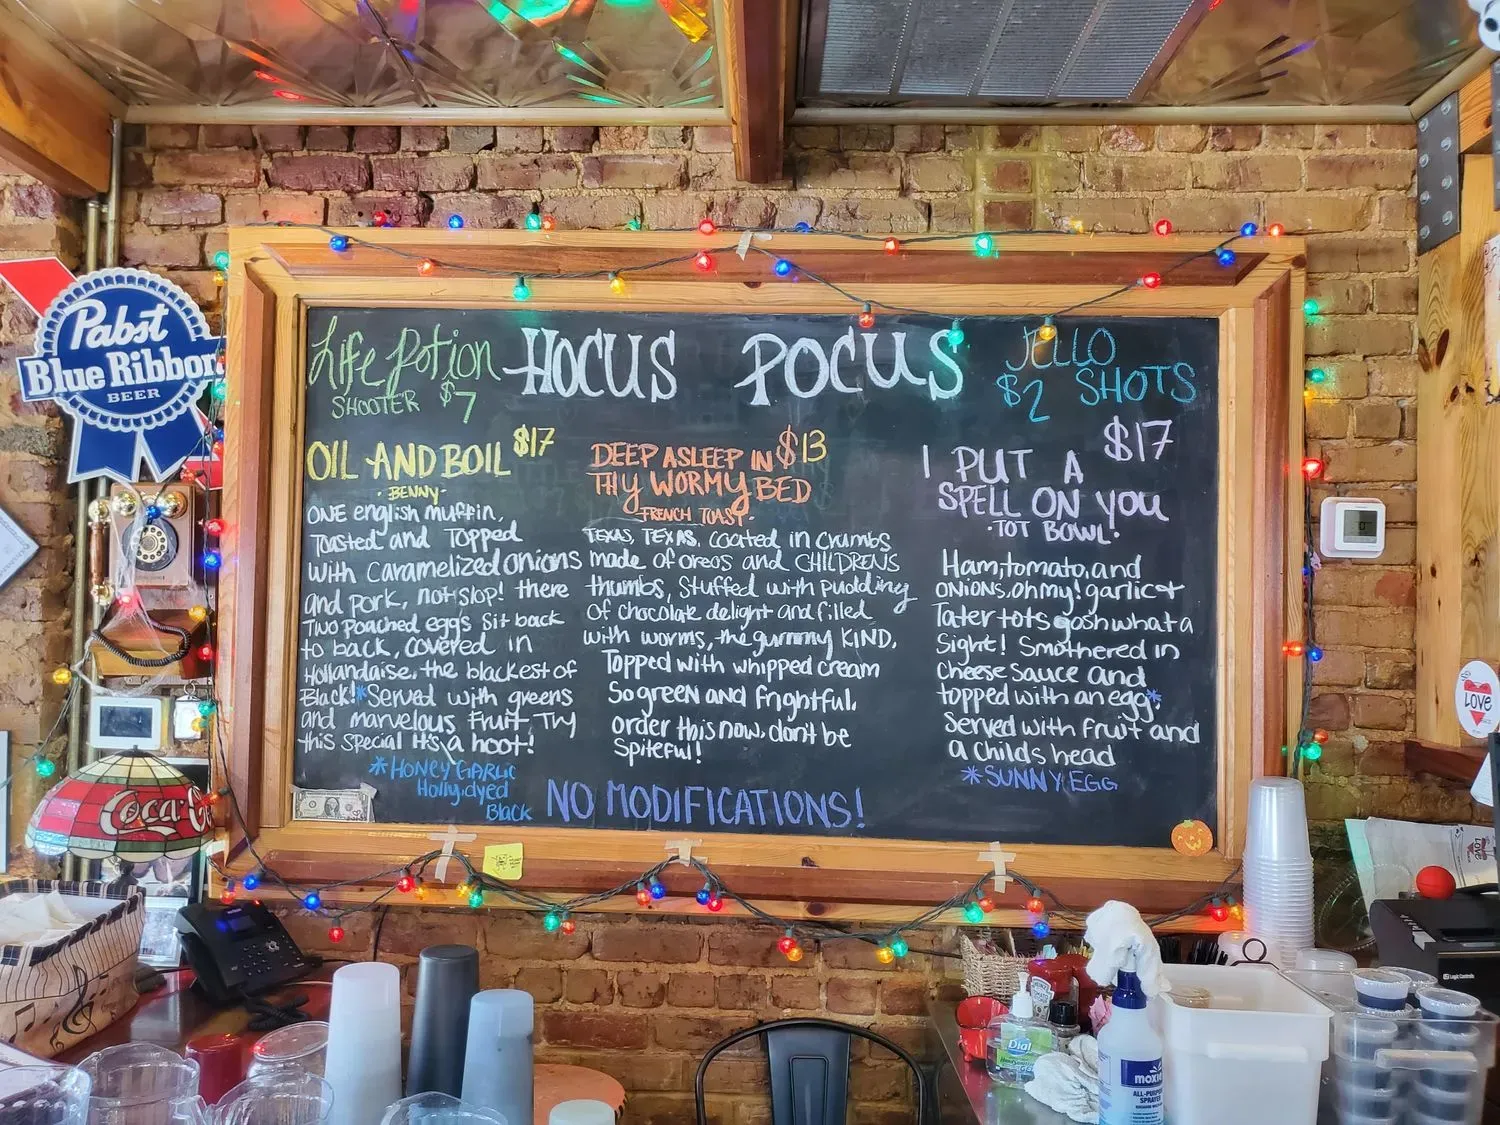 Life Potion
SHOOTER $7
HOCUS POCUS
JELLO
$2 SHOTS
OIL AND BOIL $17
· BENNY ·
ONE english muffin,
Toasted and Topped
with caramelized onions
and pork, not slop! there
Two poached eggs sit back
to back, covered in
Hollandaise, the blackest of
Black!* Served with greens
and marvelous fruit, Try
this special it's a hoot!
*HONEY GARLIC
Holly, dyed
Black
DEEP ASLEEP IN $13
THY WORMY BED
FRENCH TOAST·
TEXAS, TEXAS, coated in crumbs
made of oreos and CHILDRENS
thumbs, Stuffed with pudding
Of chocolate delight and filled
with worms, the gummy KIND,
Topped with whipped cream
So green and frightful,
order this now, don't be
Spiteful!
I PUT A $17
SPELL ON YOU
·TOT BOWL·
Ham, tomato, and
onions, oh my! garlic +
Tater tots gosh what a
Sight! Smothered in
Cheese Sauce and
topped with an egg*
Served with fruit and
a childs head
*SUNNY EGG
NO MODIFICATIONS!
Pabst
Blue Ribbon
BEER
Coca-Co
LOVE
Dial
moxie
ALL-PURPOSE
SPRAYER
Logic Controls